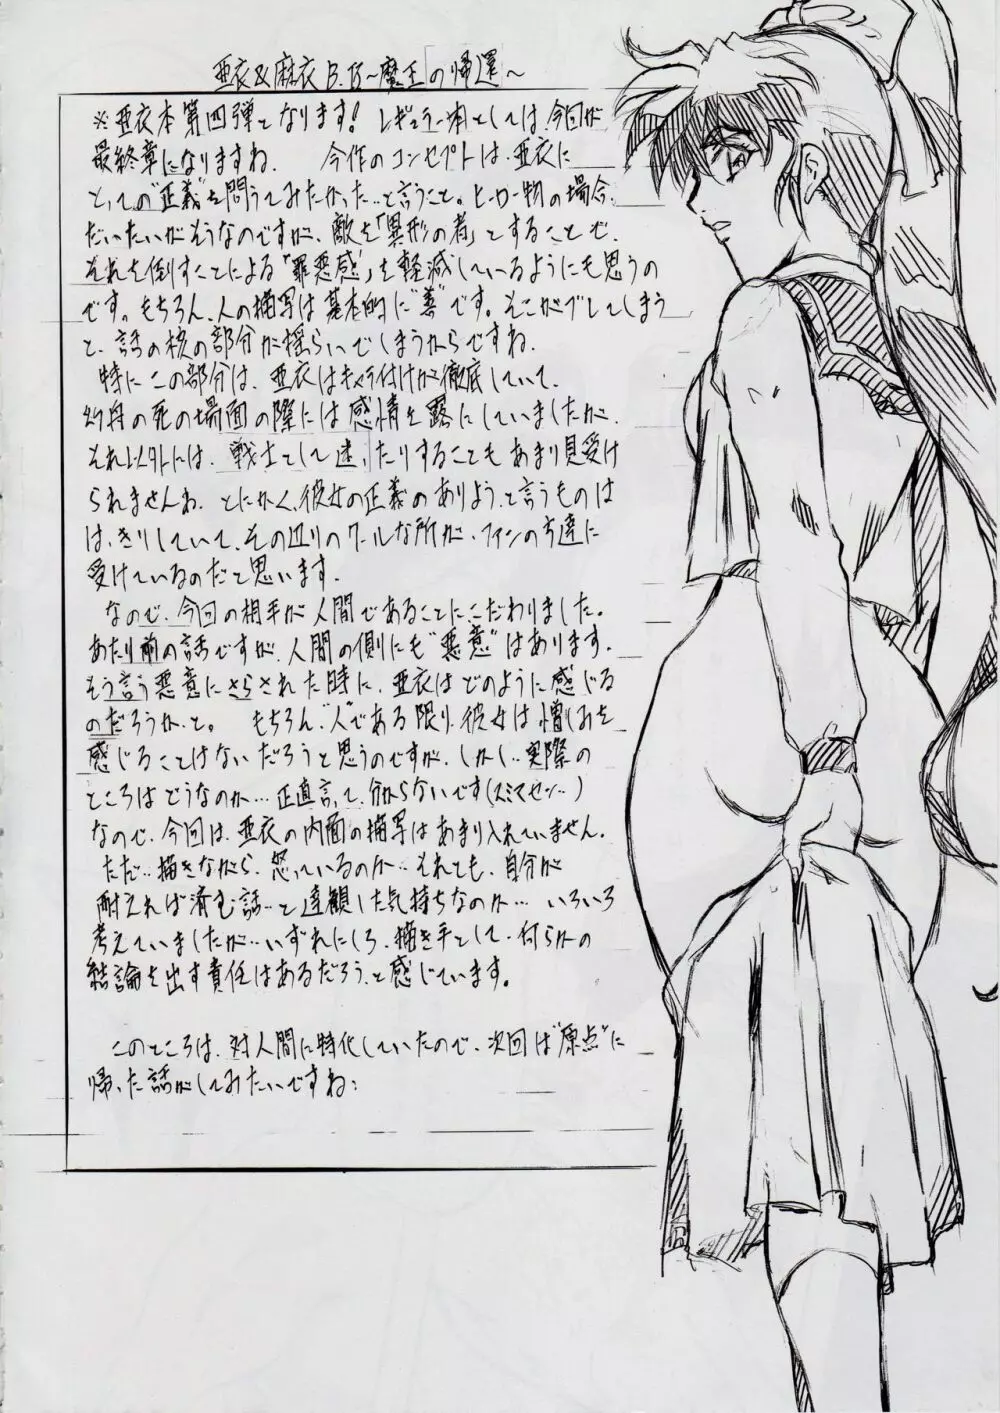 亜衣&麻衣 B.B〜魔王の帰還〜
※亜衣本第四弾となります! レギュラー本としては、今回が
最終章になりますね. 今作のコンセプトは、亜衣に
とっての"正義"を問うてみたかった…と言うこと。ヒーロー物の場合、
だいたいがそうなのですが、敵を「異形の者」とすることで、
それを倒すことによる"罪悪感"を軽減しているようにも思うの
です。もちろん、人の描写は基本的に"善"です。そこがブレてしまう
と、話の核の部分が揺らいでしまうからですね.
特にこの部分は、亜衣はキャラ付けが徹底していて、
幻舟の死の場面の際には感情を露にしていましたが、
それ以外には、戦士として迷ったりすることもあまり見受け
られませんね. とにかく、彼女の正義のありよう、と言うものは
はっきりしていて、その辺りのクールな所が、ファンの方達に
受けているのだと思います.
なので、今回の相手が人間であることにこだわりました。
あたり前の話ですが、人間の側にも"悪意"はあります.
そう言う悪意にさらされた時に、亜衣はどのように感じる
のだろうか、と。 もちろん、"人"である限り、彼女は憎しみを
感じることはないだろうと思うのですが、しかし…実際の
ところはどうなのか…正直言って、分からないです(スミマセン…)
なので、今回は、亜衣の内面の描写はあまり入れていません.
ただ…描きながら、怒っているのか…それとも、自分が
耐えれば済む話…と達観した気持ちなのか… いろいろ
考えていましたが…いずれにしろ、描き手として、何らかの
結論を出す責任はあるだろう、と感じています。
このところは、対人間に特化していたので、次回は"原点"に
帰った話がしてみたいですね: